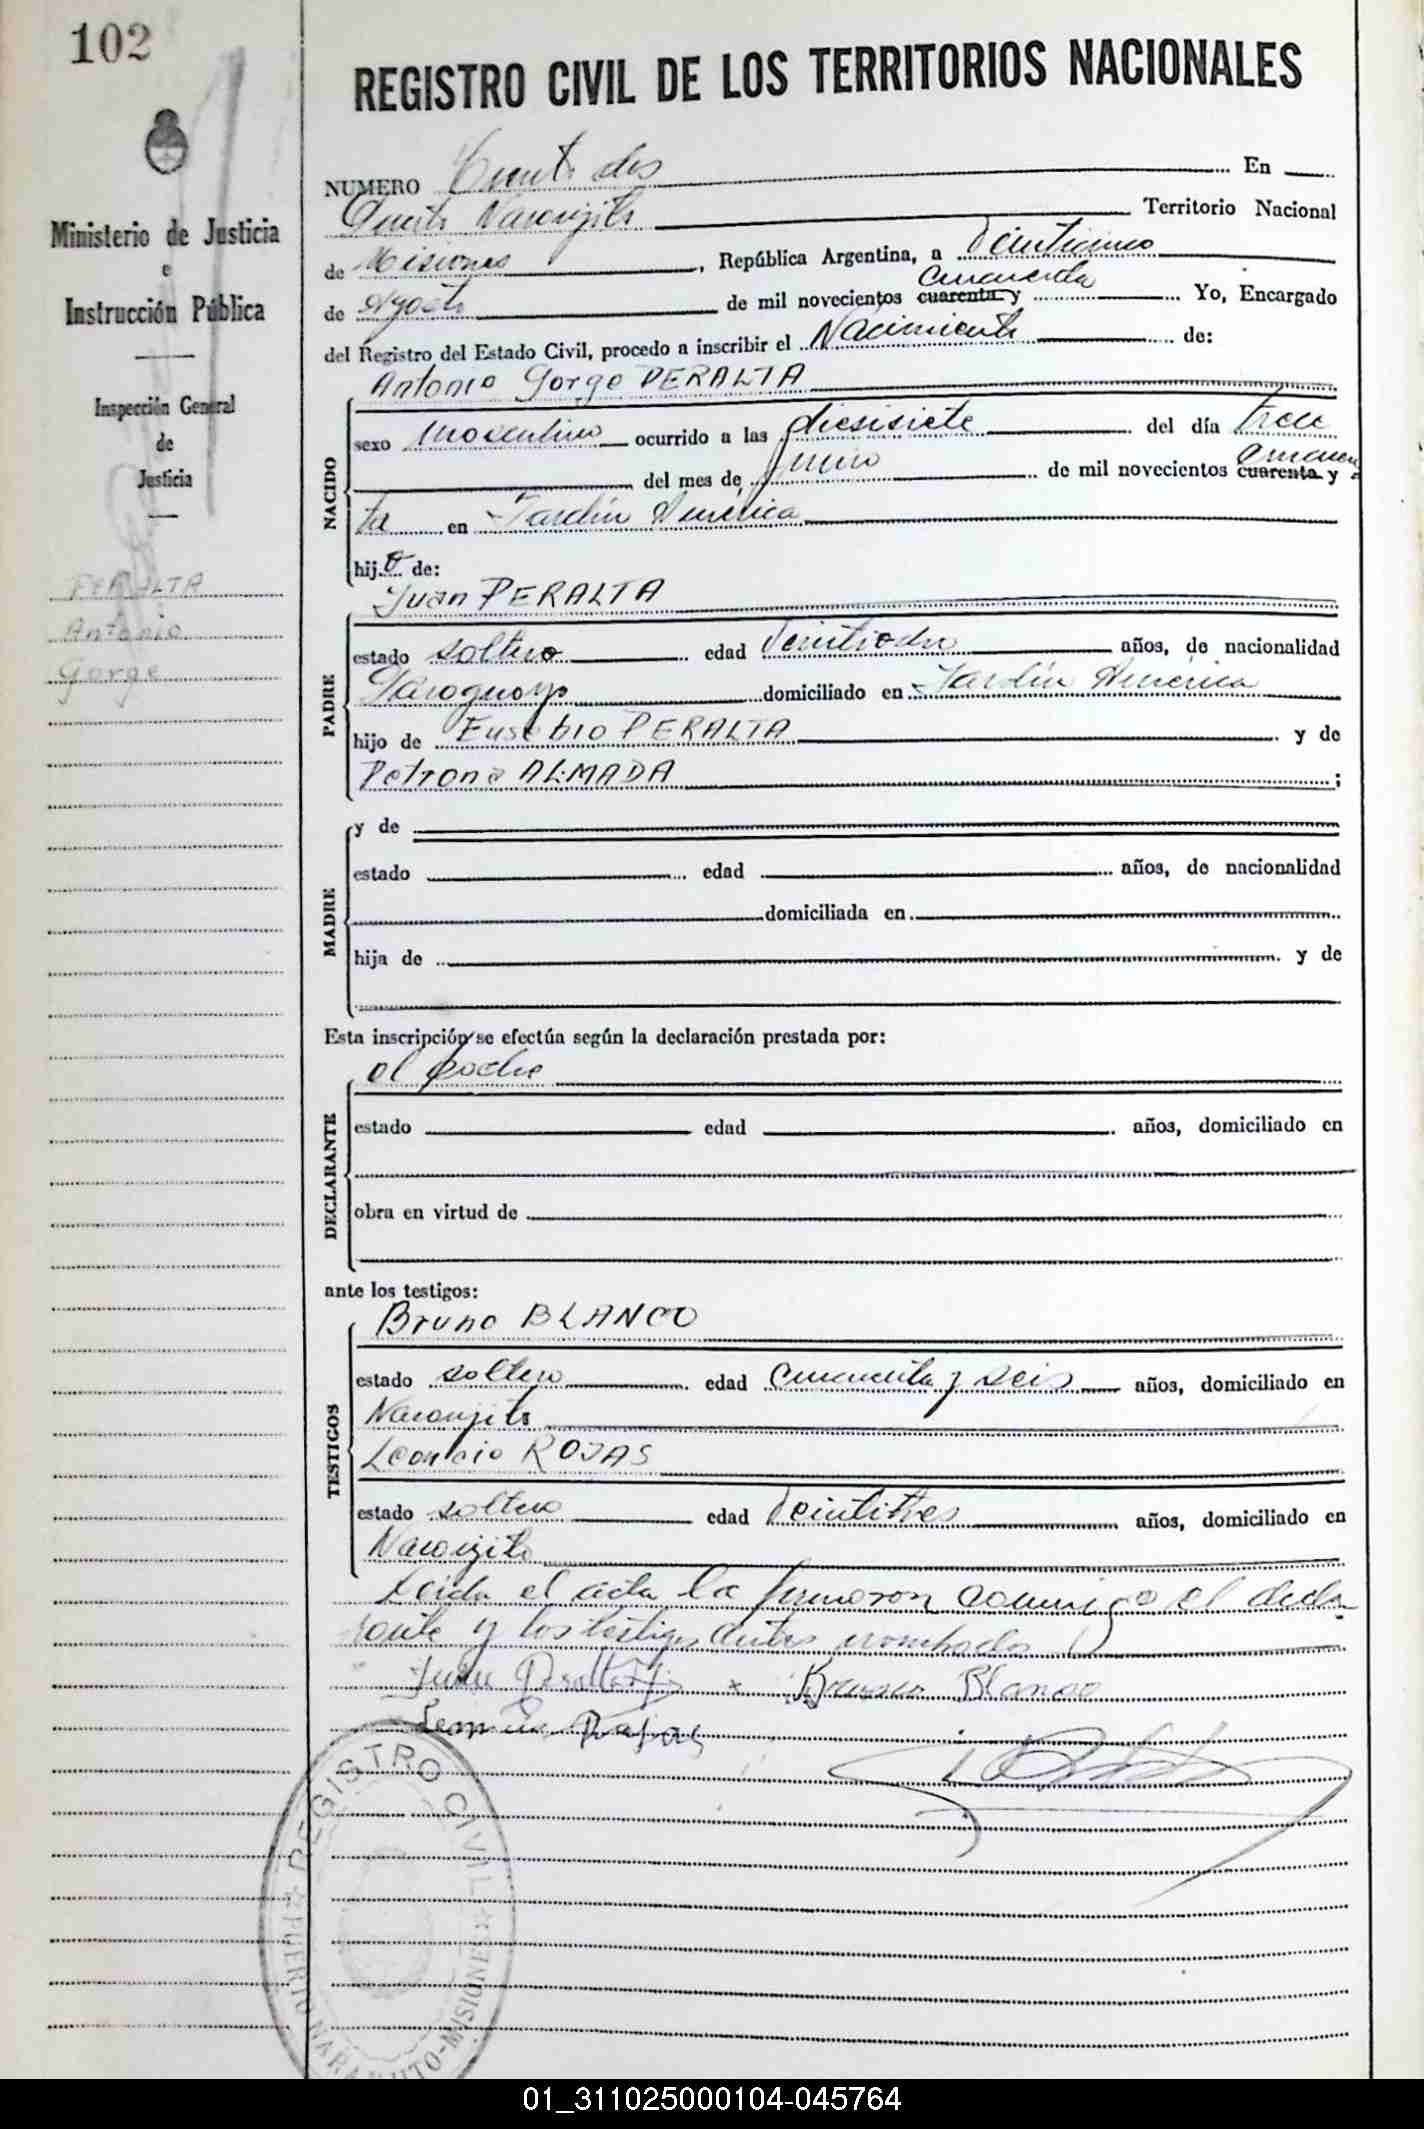 102
REGISTRO CIVIL DE LOS TERRITORIOS NACIONALES
Ministerio de Justicia
e
Instrucción Pública
Inspección General
de
Justicia
PERALTA
Antonio
Gorge
NUMERO Ciento dos En
Puerto Naranjito Territorio Nacional
de Misiones, República Argentina, a veinticinco
de Agosto de mil novecientos cuarenta y cincuenta Yo, Encargado
del Registro del Estado Civil, procedo a inscribir el Nacimiento de:
Antonio Gorge PERALTA
NACIDO
sexo masculino ocurrido a las diesisiete del día trece
del mes de junio de mil novecientos cuarenta y cincuen
ta en Jardín América
hijo de:
Juan PERALTA
PADRE
estado soltero edad años, de nacionalidad
Paraguayo domiciliado en Jardín América
hijo de Eusebio PERALTA y de
Petrona ALMADA ;
MADRE
y de
estado edad años, de nacionalidad
domiciliada en
hija de y de
Esta inscripción se efectúa según la declaración prestada por:
el padre
DECLARANTE
estado edad años, domiciliado en
obra en virtud de
ante los testigos:
Bruno BLANCO
TESTIGOS
estado soltero edad cincuenta y seis años, domiciliado en
Naranjito
Leoncio ROJAS
estado soltero edad veintitres años, domiciliado en
Naranjito
Leida el acta la firmaron conmigo el decla
rante y los testigos antes nombrados
Juan Peralta x Bruno Blanco
Leoncio Rojas
REGISTRO CIVIL
PUERTO NARANJITO-MISIONES
01_311025000104-045764